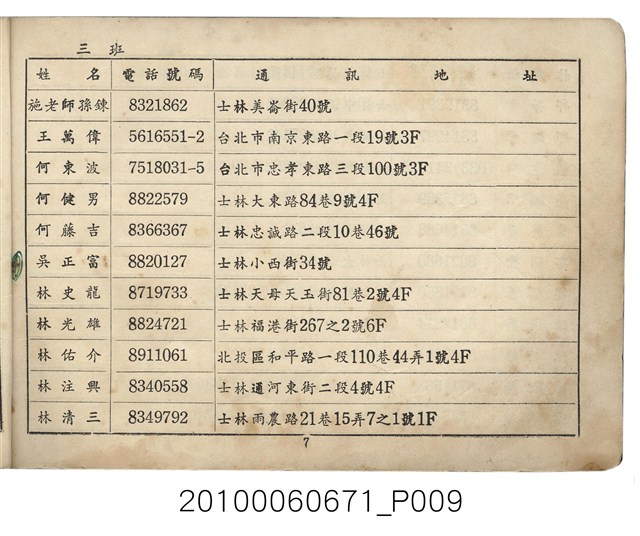 三班
姓名 電話號碼 通訊地址
施老師孫鍊 8321862 士林美崙街40號
王萬偉 5616551-2 台北市南京東路一段19號3F
何東波 7518031-5 台北市忠孝東路三段100號3F
何健男 8822579 士林大東路84巷9號4F
何藤吉 8366367 士林忠誠路二段10巷46號
吳正富 8820127 士林小西街34號
林史龍 8719733 士林天母天玉街81巷2號4F
林光雄 8824721 士林福港街267之2號6F
林佑介 8911061 北投區和平路一段110巷44弄1號4F
林注興 8340558 士林通河東街二段4號4F
林清三 8349792 士林雨農路21巷15弄7之1號1F
7
20100060671_P009